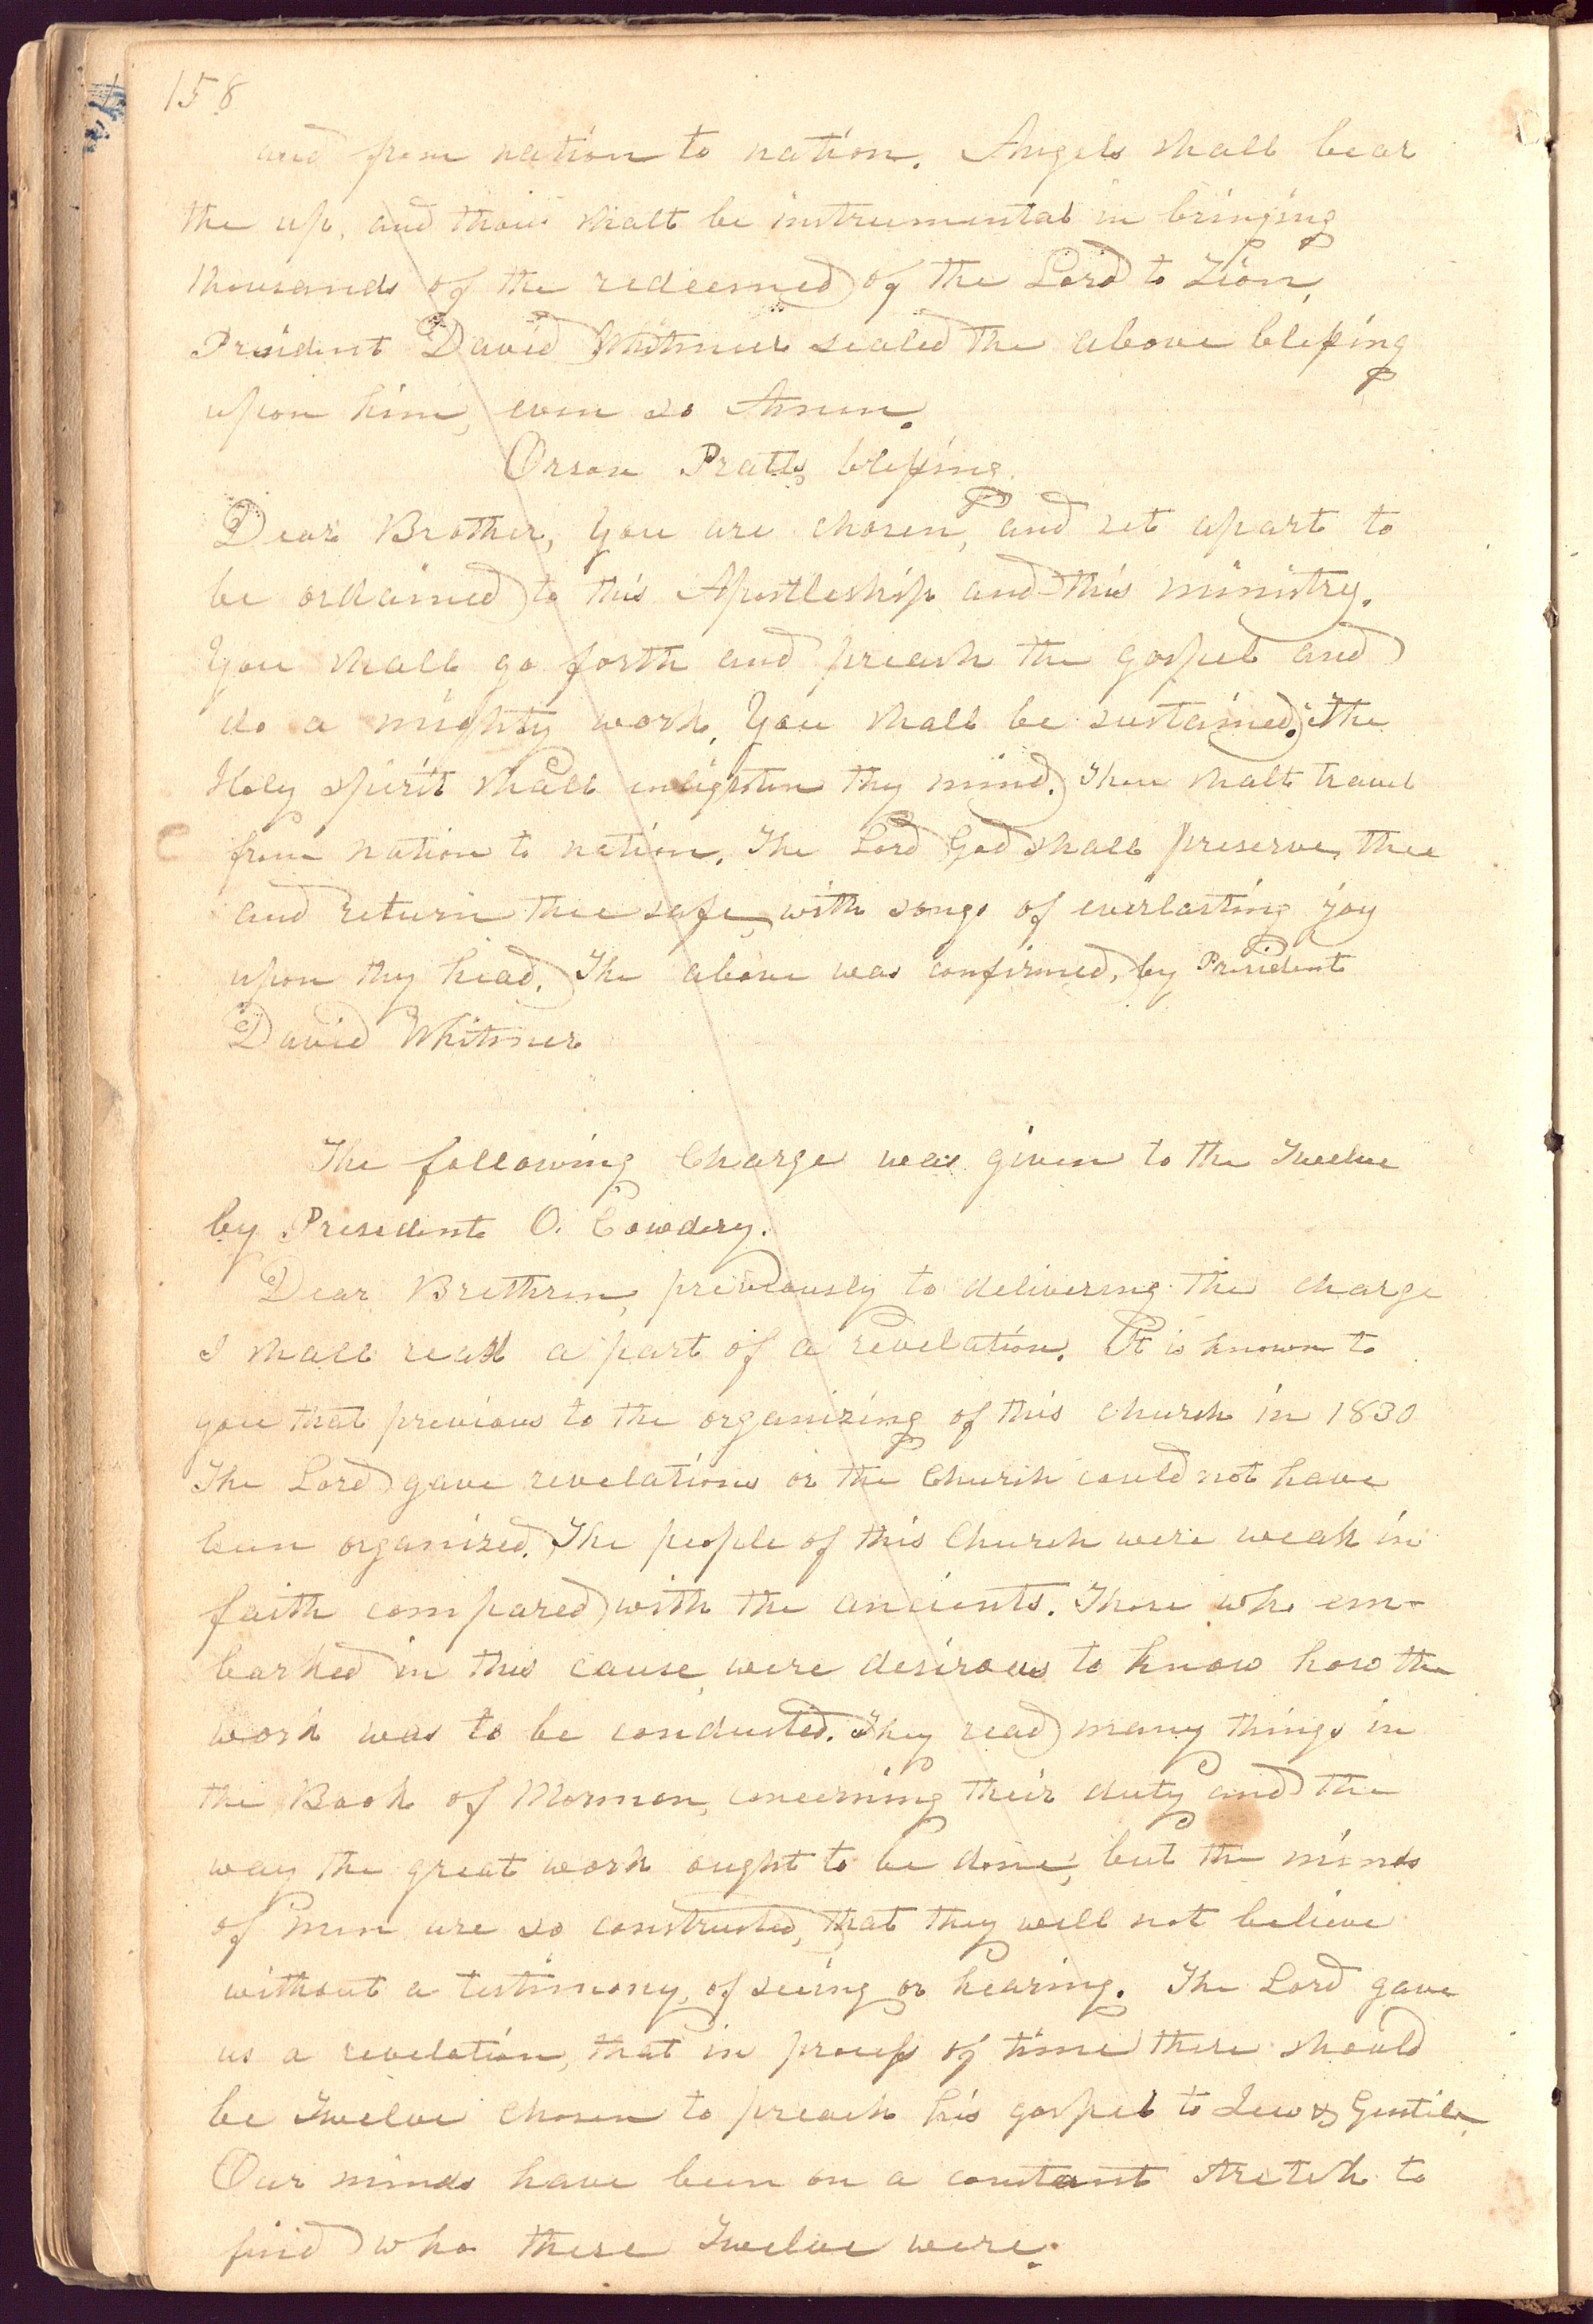 158
and from nation to nation. Angels shall bear
the up, and thou shalt be instrumental in bringing
thousands of the redeemed of the Lord to Zion,
President David Whitmer sealed the above blessing
upon him, even so Amen.
Orson Pratts blessing.
Dear Brother, you are chosen, and set apart to
be ordained to this Apostleship and this ministry.
You shall go forth and preach the gospel and
do a mighty work. You shall be sustained. The
Holy spirit shall enlighten thy mind. Thou shalt travel
from nation to nation. The Lord God shall preserve thee
and return thee safe, with songs of everlasting joy
upon thy head. The above was confirmed, by President
David Whitmer
The following Charge was given to the Twelve
by President O. Cowdery.
Dear Brethren, previously to delivering the charge
I shall read a part of a revelation. It is known to
you that previous to the organizing of this church in 1830
The Lord gave revelations or the Church could not have
been organized. The people of this Church were weak in
faith compared with the ancients. Those who em-
barked in this cause were desirous to know how the
work was to be conducted. They read many things in
the Book of Mormon, concerning their duty and the
way the great work ought to be done, but the minds
of men are so constructed, that they will not believe
without a testimony, of seeing or hearing. The Lord gave
us a revelation, that in process of time there should
be Twelve chosen to preach his gospel to Jew & Gentile,
Our minds have been on a constant stretch to
find who these Twelve were.